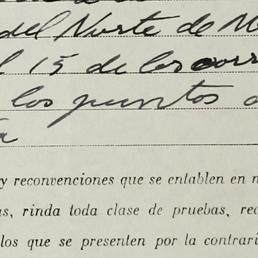 del Norte de M
l 15 de los corr
los puntos
y reconvenciones que se entablen en n
as, rinda toda clase de pruebas, rec
los que se presenten por la contrari